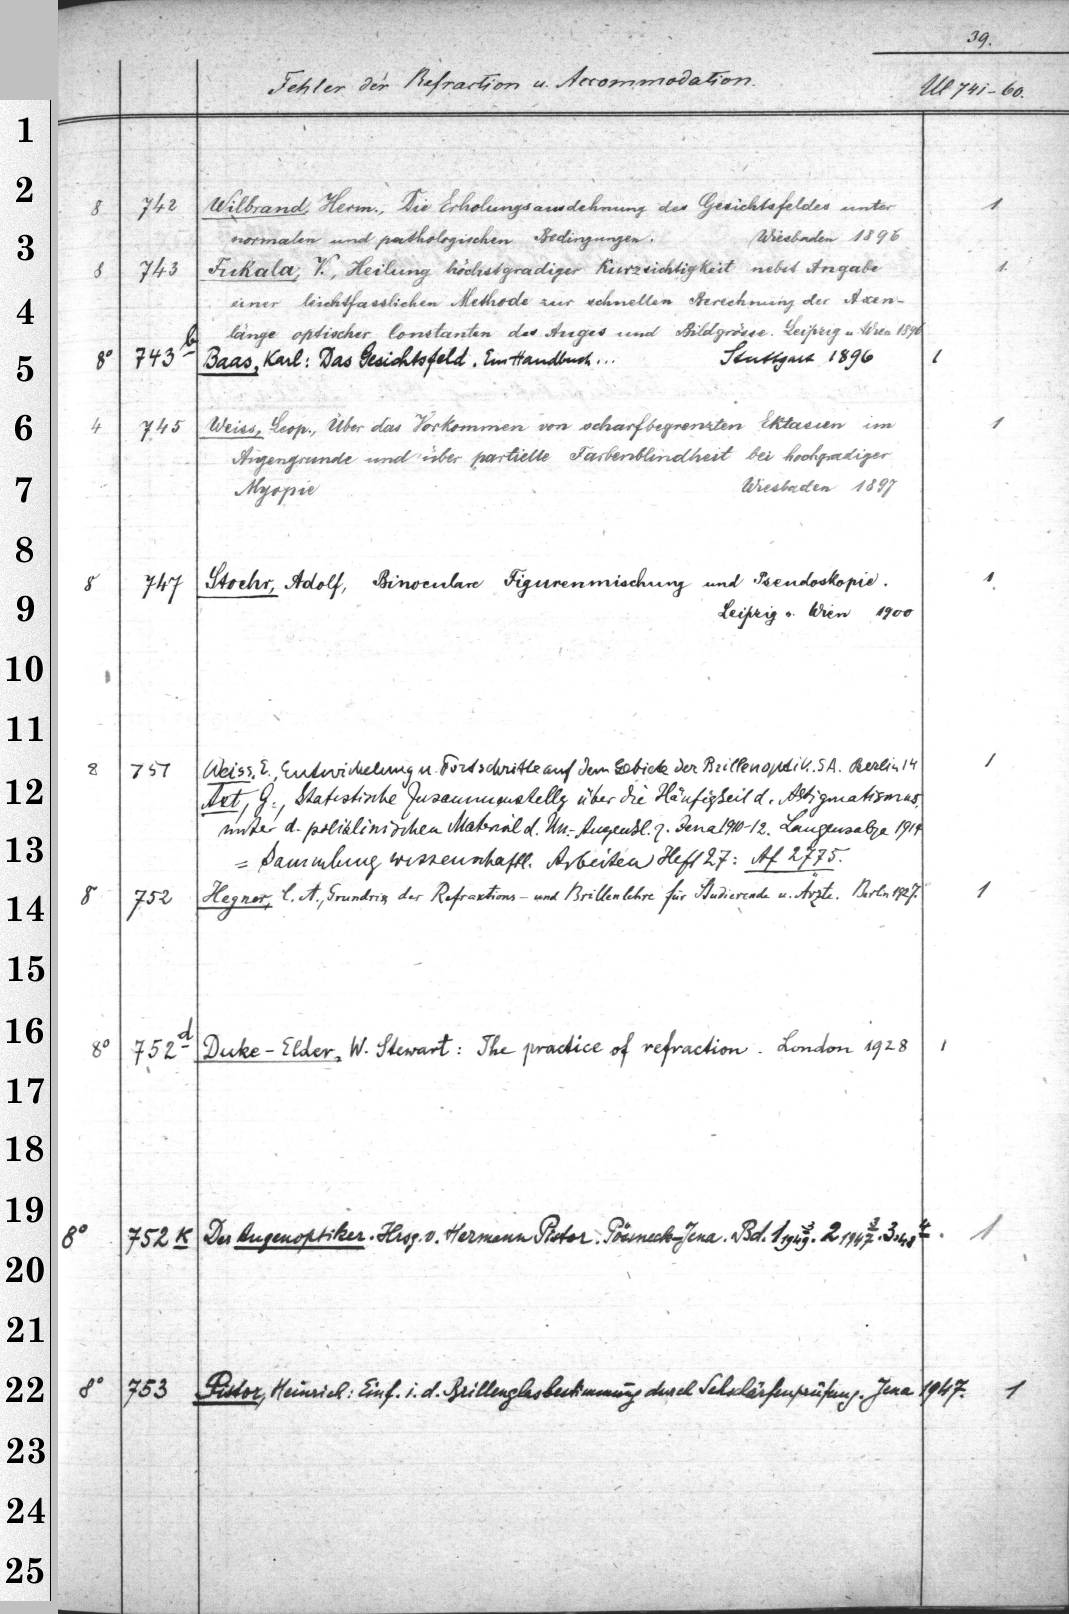 39.
Fehler der Refraction u. Accommodation. Ul 741-60.
1
2
8 742 Wilbrand, Herm., Die Erholungsausdehnung des Gesichtsfeldes unter 1
3 normalen und pathologischen Bedingungen. Wiesbaden 1896
8 743 Fukala, V., Heilung höchstgradiger Kurzsichtigkeit nebst Angabe 1.
4 einer leichtfasslichen Methode zur schnellen Berechnung der Axen-
länge optischer Constanten des Auges und Bildgrösse. Leipzig u. Wien 1896
5 8° 743 b Baas, Karl: Das Gesichtsfeld. Ein Handbuch... Stuttgart 1896 1
6 4 745 Weiss, Leop., Über das Vorkommen von scharfbegrenzten Ektasien im 1
Augengrunde und über partielle Farbenblindheit bei hochgradiger
7 Myopie Wiesbaden 1897
8
8 747 Stoehr, Adolf, Binoculare Figurenmischung und Pseudoskopie. 1
9 Leipzig u. Wien 1900
10
11
8 751 Weiss, E., Entwickelung u. Fortschritte auf dem Gebiete der Brillenoptik. SA. Berlin 14 1
12 Axt, G., Statistische Zusammenstellg über die Häufigkeit d. Astigmatismus,
unter d. poliklinischen Material d. Un.-Augenkl. z. Jena 1910-12. Langensalza 1914
13 = Sammlung wissenschaftl. Arbeiten Heft 27: Af 2775.
14 8 752 Hegner, C. A., Grundriss der Refraktions- und Brillenlehre für Studierende u. Ärzte. Berlin 1927. 1
15
16 8° 752 d Duke-Elder, W. Stewart: The practice of refraction. London 1928 1
17
18
19
8° 752 K Der Augenoptiker. Hrsg. v. Hermann Pistor. Pössneck-Jena. Bd. 1 1949 3. 2 1947 3. 3.48 4. 1
20
21
22 8° 753 Pistor, Heinrich: Einf. i. d. Brillenglasbestimmung durch Sehschärfenprüfung. Jena 1947. 1
23
24
25